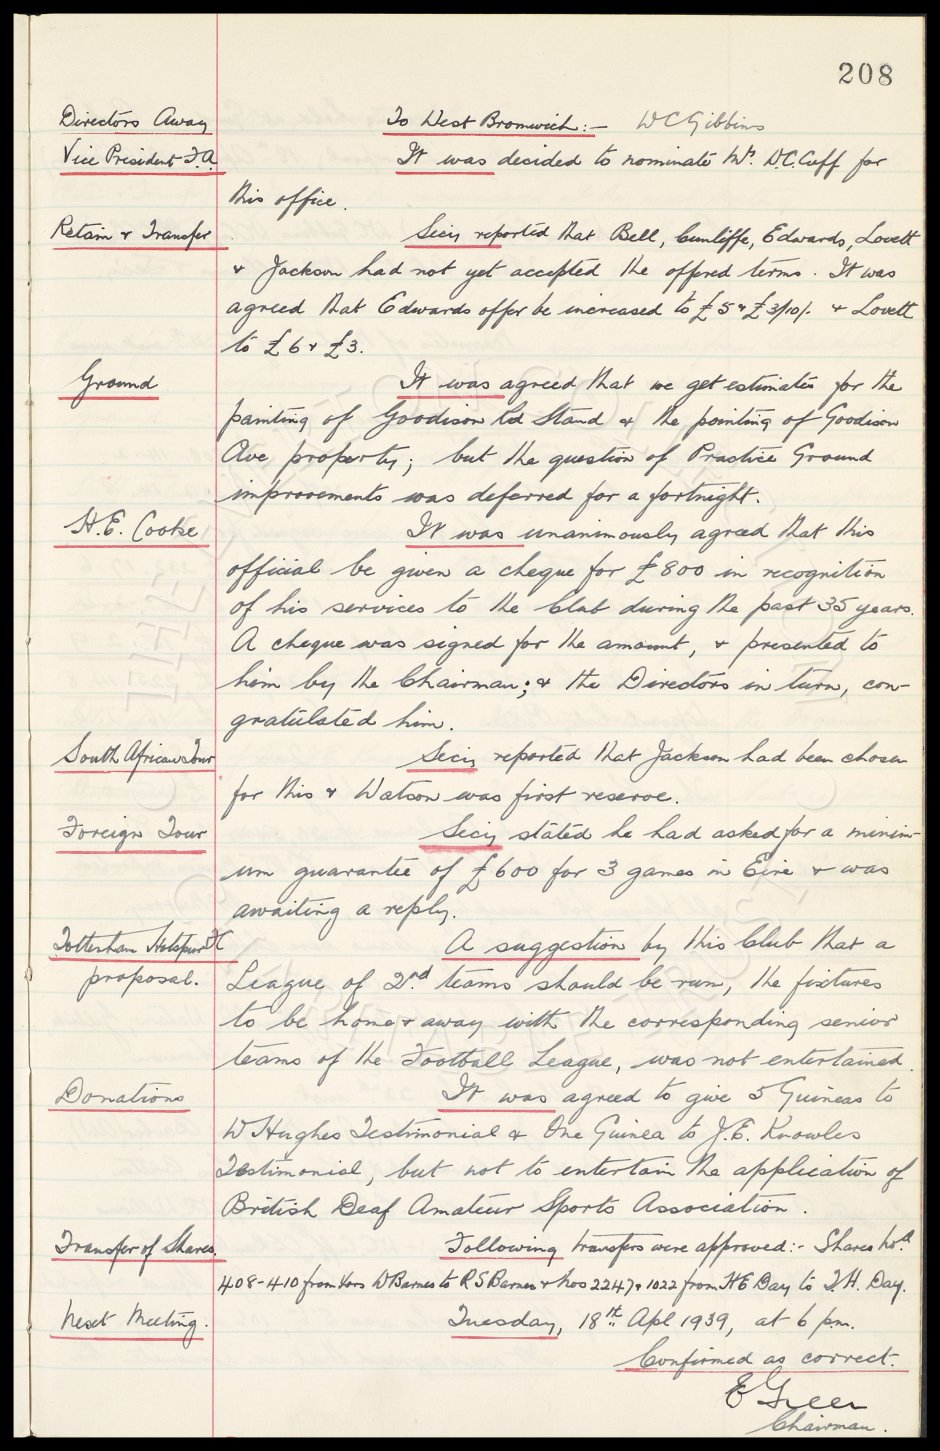 208
Directors Away To West Bromwich:- W C Gibbins
Vice President F.A. It was decided to nominate Mr. W.C. Cuff for
this office.
Retain & Transfer Secy reported that Bell, Cunliffe, Edwards, Lovett
& Jackson had not yet accepted the offered terms. It was
agreed that Edwards offer be increased to £5 & £3/10/- & Lovett
to £6 & £3.
Ground It was agreed that we get estimates for the
painting of Goodison Rd Stand & the pointing of Goodison
Ave property; but the question of Practice Ground
improvements was deferred for a fortnight.
H.E. Cooke It was unanimously agreed that this
official be given a cheque for £800 in recognition
of his services to the Club during the past 35 years.
A cheque was signed for the amount, & presented to
him by the Chairman; & the Directors in turn, con-
gratulated him.
South African Tour Secy reported that Jackson had been chosen
for this & Watson was first reserve.
Foreign Tour Secy stated he had asked for a minim-
um guarantee of £600 for 3 games in Eire & was
awaiting a reply.
Tottenham Hotspur FC A suggestion by this Club that a
proposal. League of 2nd teams should be run, the fixtures
to be home & away with the corresponding senior
teams of the Football League, was not entertained.
Donations It was agreed to give 5 Guineas to
W Hughes Testimonial & One Guinea to J.E. Knowles
Testimonial, but not to entertain the application of
British Deaf Amateur Sports Association.
Transfer of Shares. Following transfers were approved:- Shares No.s
408-410 from Exors W Barnes to R S Barnes & Nos 2247 & 1022 from H E Day to T. H. Day.
Next Meeting. Tuesday, 18th Apl 1939, at 6 pm.
Confirmed as correct.
E Green
Chairman.